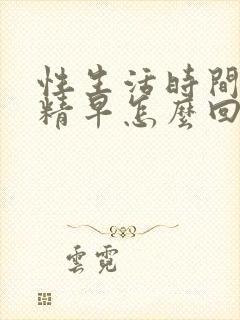 性生活時間
精早怎麼回
雲霓